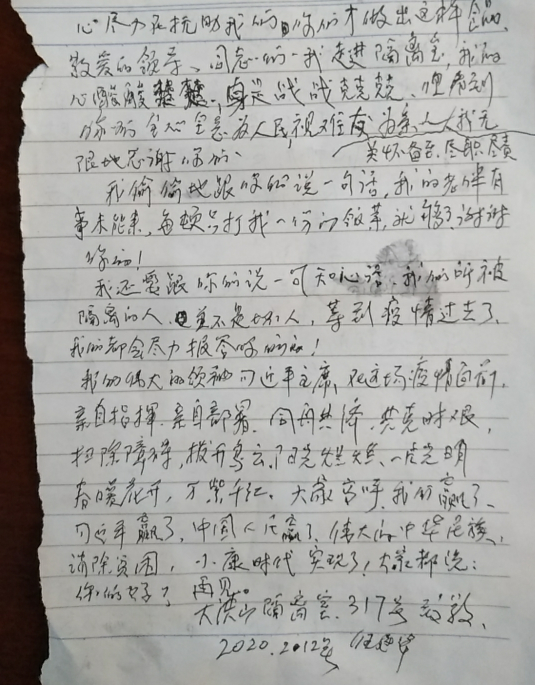 心尽力在抗助我们,你们才做出这样
敬爱的领导、同志们一我走进隔离室,我的
心酸酸楚楚,身是战战兢兢,但看到
你们全心全意为人民,视难友为亲人,我无
关怀备至、尽职、尽责
限地感谢你们、
我偷偷地跟你们说一句话,我的老伴有
事未能来,每顿只打我一份的饭菜,就够了谢谢
你们!
我还要跟你们说一句知心话,我们所被
隔离的人、也并不是坏人,等到疫情过去了、
我们都会尽力报答你们的!
我们伟大的领袖习近平主席,在这场疫情面前,
亲自指挥、亲自部署、同舟共济、共克时艰,
扫除障碍,拨开乌云,阳光灿烂、一片光明
春暖花开,万紫千红。大家高呼,我们赢了、
习近平赢了,中国人民赢了,伟大的中华民族,
消除贫困,小康时代实现了,大家都说:
你们好了 再见。
大洪山隔离室.317号致敬、
2020.2.012号